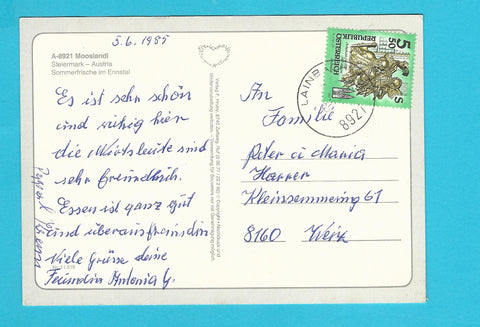 5.6.1985
A-8921 Mooslandl
Steiermark – Austria
Sommerfrische im Ennstal
Es ist sehr schön
und ruhig hier
die Wirtsleute sind
sehr freundlich.
Essen ist ganz gut
und
Viele Grüße deine
Freundin Antonia G.
An
Familie
Peter u Maria
Harrer
Kleinsemmering 61
8160 Weiz
REPUBLIK
ÖSTERREICH
5 50
S
LAINB
8921